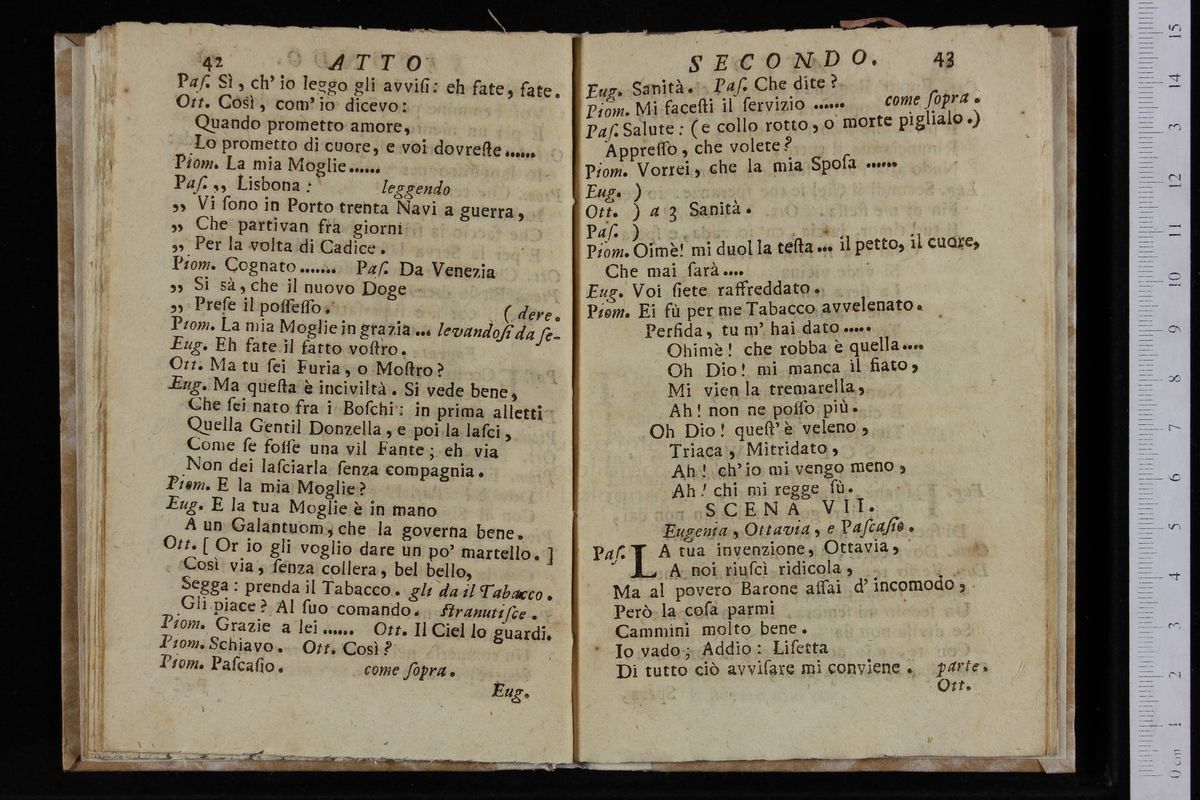 42 ATTO
Paſ. Sì, ch' io leggo gli avviſi: eh fate, fate.
Ott. Così, com' io dicevo:
Quando prometto amore,
Lo prometto di cuore, e voi dovreſte......
Piom. La mia Moglie......
Paſ. ,, Lisbona: leggendo
,, Vi ſono in Porto trenta Navi a guerra,
,, Che partivan fra giorni
,, Per la volta di Cadice.
Piom. Cognato....... Paſ. Da Venezia
,, Si sà, che il nuovo Doge
,, Preſe il poſſeſſo. (dere.
Piom. La mia Moglie in grazia ... levandoſi da ſe-
Eug. Eh fate il fatto voſtro.
Ott. Ma tu ſei Furia, o Moſtro?
Eug. Ma queſta è inciviltà. Si vede bene,
Che ſei nato fra i Boſchi: in prima alletti
Quella Gentil Donzella, e poi la laſci,
Come ſe foſſe una vil Fante; eh via
Non dei laſciarla ſenza compagnia.
Piom. E la mia Moglie?
Eug. E la tua Moglie è in mano
A un Galantuom, che la governa bene.
Ott. [ Or io gli voglio dare un po' martello. ]
Così via, ſenza collera, bel bello,
Segga: prenda il Tabacco. gli da il Tabacco.
Gli piace? Al ſuo comando. ſtranutiſce.
Piom. Grazie a lei...... Ott. Il Ciel lo guardi.
Piom. Schiavo. Ott. Così?
Piom. Paſcaſio. come ſopra.
Eug.
SECONDO. 43
Eug. Sanità. Paſ. Che dite?
Piom. Mi faceſti il ſervizio ...... come ſopra.
Paſ. Salute: (e collo rotto, o morte piglialo.)
Appreſſo, che volete?
Piom. Vorrei, che la mia Spoſa ......
Eug. )
Ott. ) a 3 Sanità.
Paſ. )
Piom. Oimè! mi duol la teſta ... il petto, il cuore,
Che mai ſarà....
Eug. Voi ſiete raffreddato.
Piom. Ei fù per me Tabacco avvelenato.
Perfida, tu m' hai dato.....
Ohimè! che robba è quella....
Oh Dio! mi manca il fiato,
Mi vien la tremarella,
Ah! non ne poſſo più.
Oh Dio! queſt' è veleno,
Triaca, Mitridato,
Ah! ch' io mi vengo meno,
Ah! chi mi regge ſù.
SCENA VII.
Eugenia, Ottavia, e Paſcaſio.
Paſ. LA tua invenzione, Ottavia,
A noi riuſcì ridicola,
Ma al povero Barone aſſai d' incomodo,
Però la coſa parmi
Cammini molto bene.
Io vado; Addio: Liſetta
Di tutto ciò avviſare mi conviene. parte.
Ott.
0 cm 1 2 3 4 5 6 7 8 9 10 11 12 13 14 15